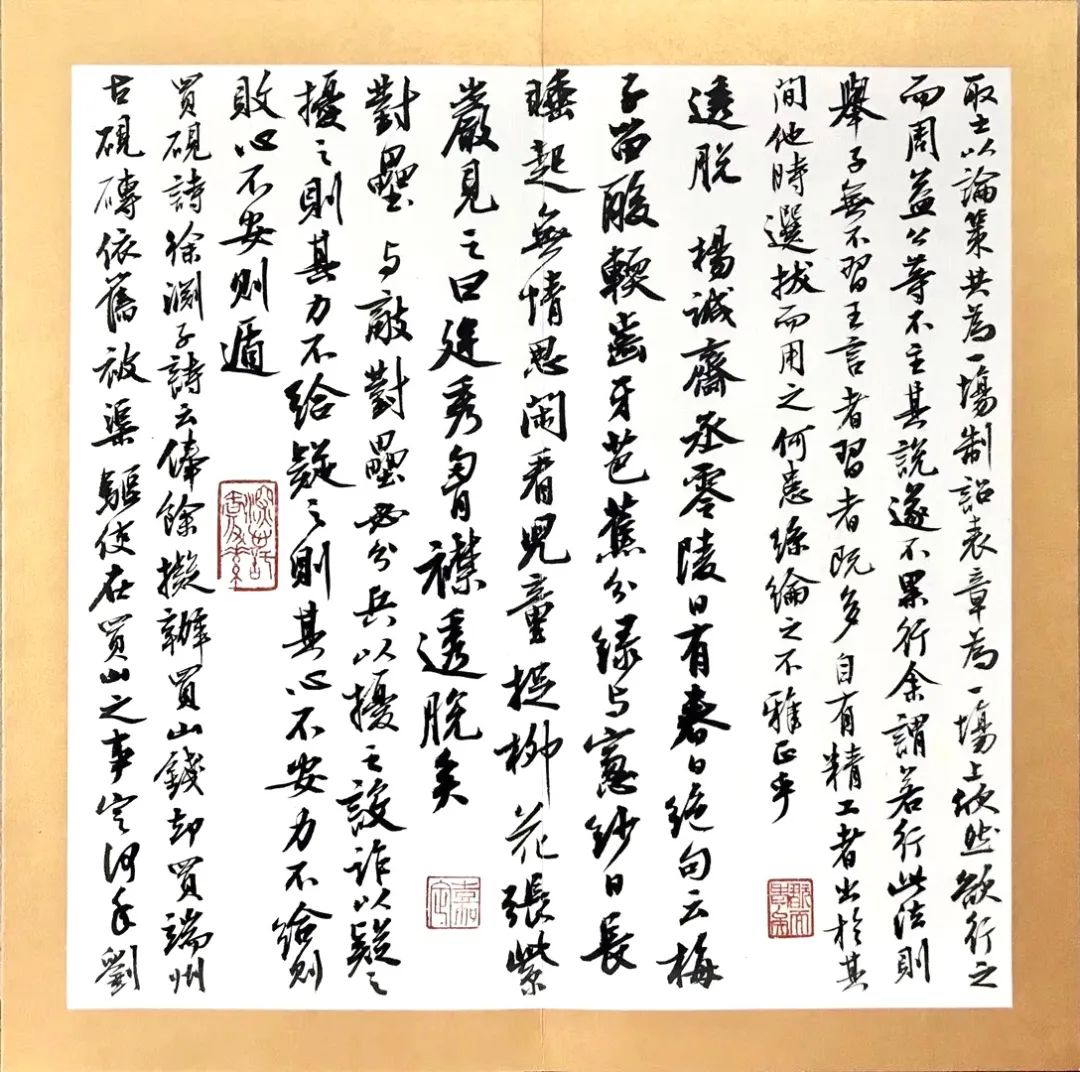 取士以論策共為一場制詔表章為一場上欣然欲行之
而周益公等不主其說遂不果行余謂若行此法則
舉子無不習王言者習者既多自有精工者出於其
間他時選拔而用之何患絲綸之不雅正乎
透脫 楊誠齋丞零陵日有春日絕句云梅
子留酸軟齒牙芭蕉分綠与窻紗日長
睡起無情思閑看兒童捉柳花張紫
巖見之曰廷秀胸襟透脫矣
對壘 与敵對壘必分兵以擾之設詐以疑之
擾之則其力不給疑之則其心不安力不給則
敗心不安則遁
買硯詩徐淵子詩云俸餘擬辦買山錢却買端州
古硯磚依舊被渠驅使在買山之事定何年劉